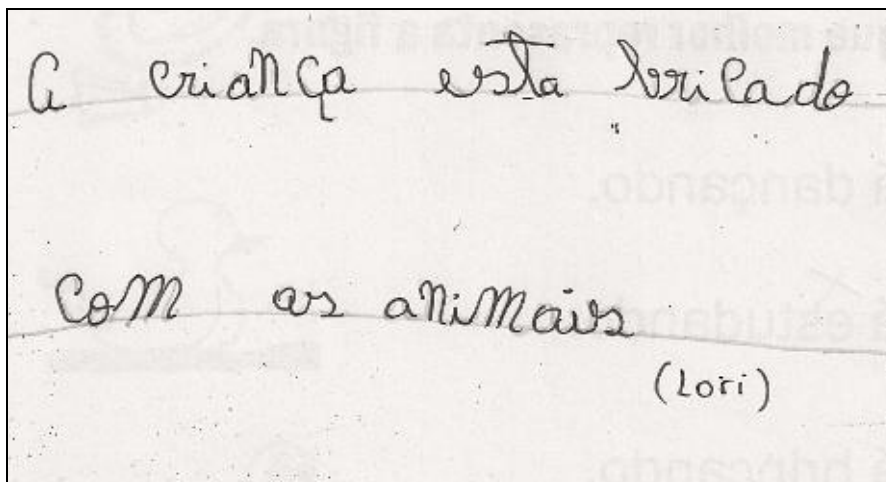 A criança esta bricado
com as animais
(Lori)